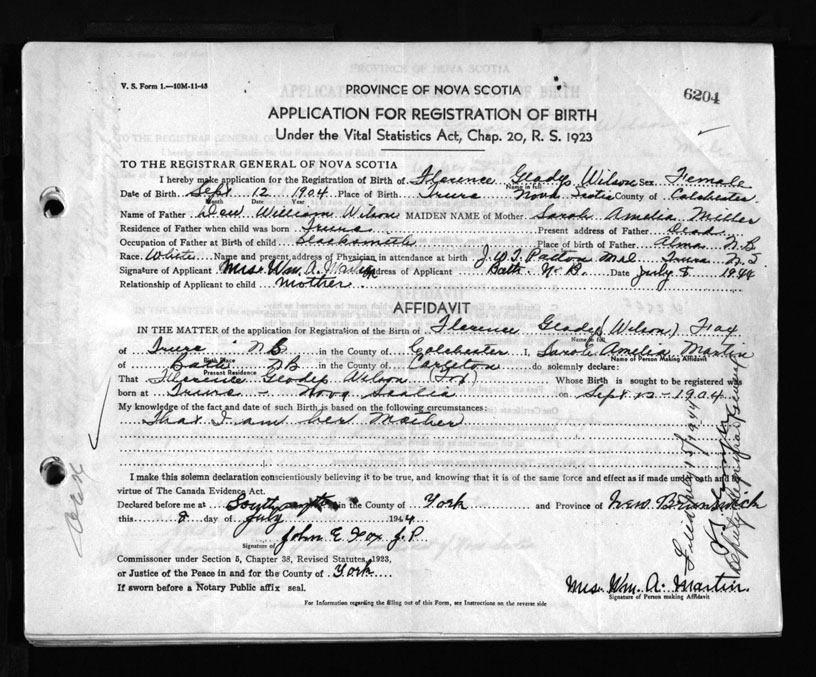 V. S. Form 1.—10M-11-43
6204
PROVINCE OF NOVA SCOTIA
APPLICATION FOR REGISTRATION OF BIRTH
Under the Vital Statistics Act, Chap. 20, R. S. 1923
TO THE REGISTRAR GENERAL OF NOVA SCOTIA
I hereby make application for the Registration of Birth of Florence Gladys Wilson Sex Female
Name in full
Date of Birth Sept 12 1904 Place of Birth Truro Nova Scotia County of Colchester
Month Date Year
Name of Father William Wilson MAIDEN NAME of Mother Sarah Amelia Miller
Residence of Father when child was born Truro Present address of Father Dead
Occupation of Father at Birth of child Blacksmith Place of birth of Father Alma N.B
Race White Name and present address of Physician in attendance at birth Truro N.S.
Signature of Applicant Mrs Wm. A. Martin Address of Applicant Bath N.B. Date July 8 1944
Relationship of Applicant to child mother
AFFIDAVIT
IN THE MATTER of the application for Registration of the Birth of Florence Gladys (Wilson) Fox
Name in full
of Truro NB in the County of Colchester I, Sarah Amelia Martin
Birth Place Name of Person Making Affidavit
of Bath NB in the County of Carleton do solemnly declare:
Present Residence
That Florence Gladys Wilson (Fox) Whose Birth is sought to be registered was
born at Truro - Nova Scotia on Sept 12 - 1904
My knowledge of the fact and date of such Birth is based on the following circumstances:
That I am her Mother
I make this solemn declaration conscientiously believing it to be true, and knowing that it is of the same force and effect as if made under oath and by
virtue of The Canada Evidence Act.
Declared before me at in the County of York and Province of New Brunswick
this 8 day of July 1944
John E Fox J.P.
Signature of
Commissioner under Section 5, Chapter 38, Revised Statutes, 1923,
or Justice of the Peace in and for the County of York
If sworn before a Notary Public affix seal.
Mrs. Wm. A. Martin.
Signature of Person making Affidavit
For Information regarding the filling out of this Form, see Instructions on the reverse side
Filed July 15/1944
Deputy Registrar General